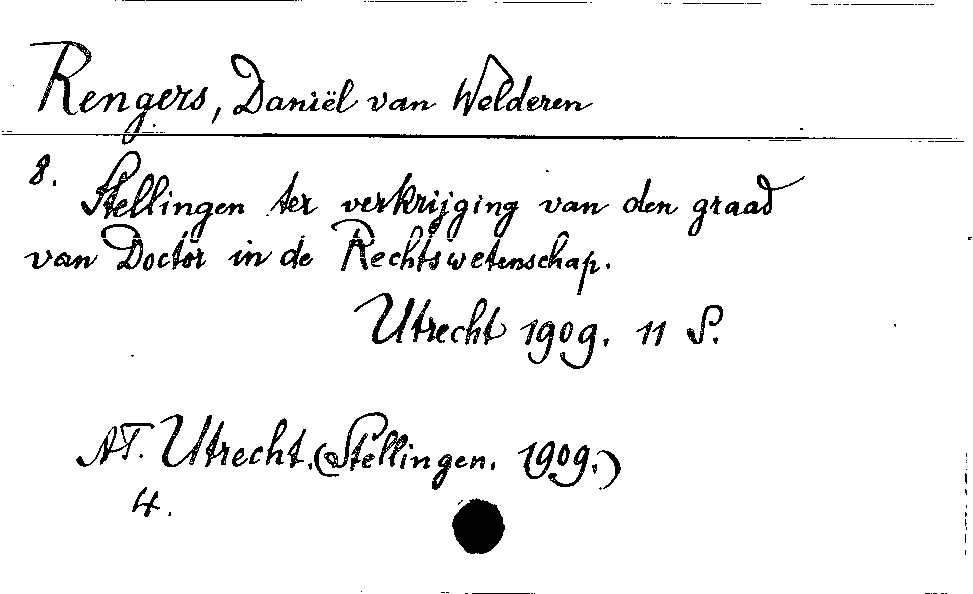 Rengers, Daniël van Welderen
8.
Stellingen ter verkrijging van den graad
van Doctor in de Rechtswetenschap.
Utrecht 1909. 11 S.
AT. Utrecht. (Stellingen. 1909.)
4.